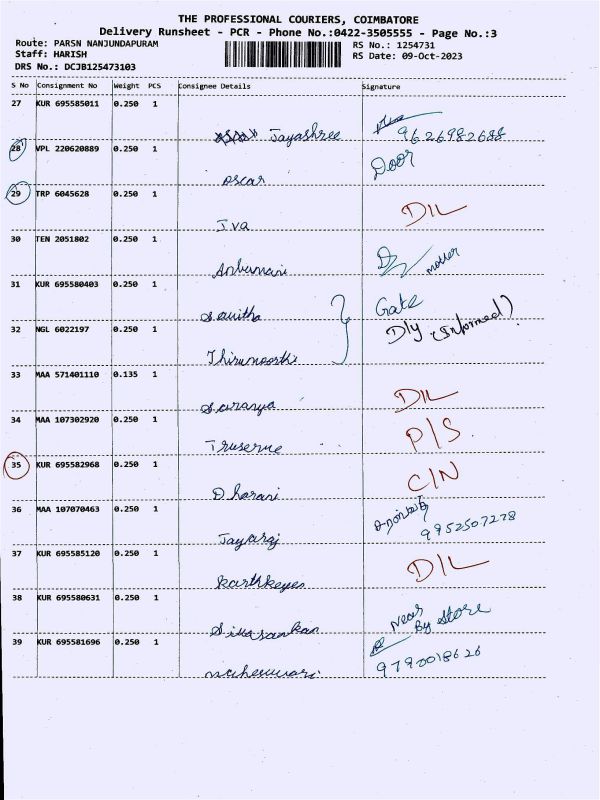 THE PROFESSIONAL COURIERS, COIMBATORE
Delivery Runsheet - PCR - Phone No.:0422-3505555 - Page No.:3
Route: PARSN NANJUNDAPURAM RS No.: 1254731
Staff: HARISH RS Date: 09-Oct-2023
DRS No.: DCJB125473103
S No Consignment No Weight PCS Consignee Details Signature
27 KUR 695585011 0.250 1
Jayashree 9626982688
28 VPL 220620889 0.250 1 Door
oscar
29 TRP 6045628 0.250 1 D/L
Iva
30 TEN 2051802 0.250 1 mother
31 KUR 695580403 0.250 1 Gate
Savitha Dly (Informed)
32 NGL 6022197 0.250 1
Thirumoorthi
33 MAA 571401110 0.135 1 D/L
Saranya
34 MAA 107302920 0.250 1 P/S
35 KUR 695582968 0.250 1 C/N
Dharani
36 MAA 107070463 0.250 1
Jayaraj 9952507278
37 KUR 695585120 0.250 1 D/L
karthkeyen
38 KUR 695580631 0.250 1 Near
Sivasankar By Store
39 KUR 695581696 0.250 1
maheswari 9790018626